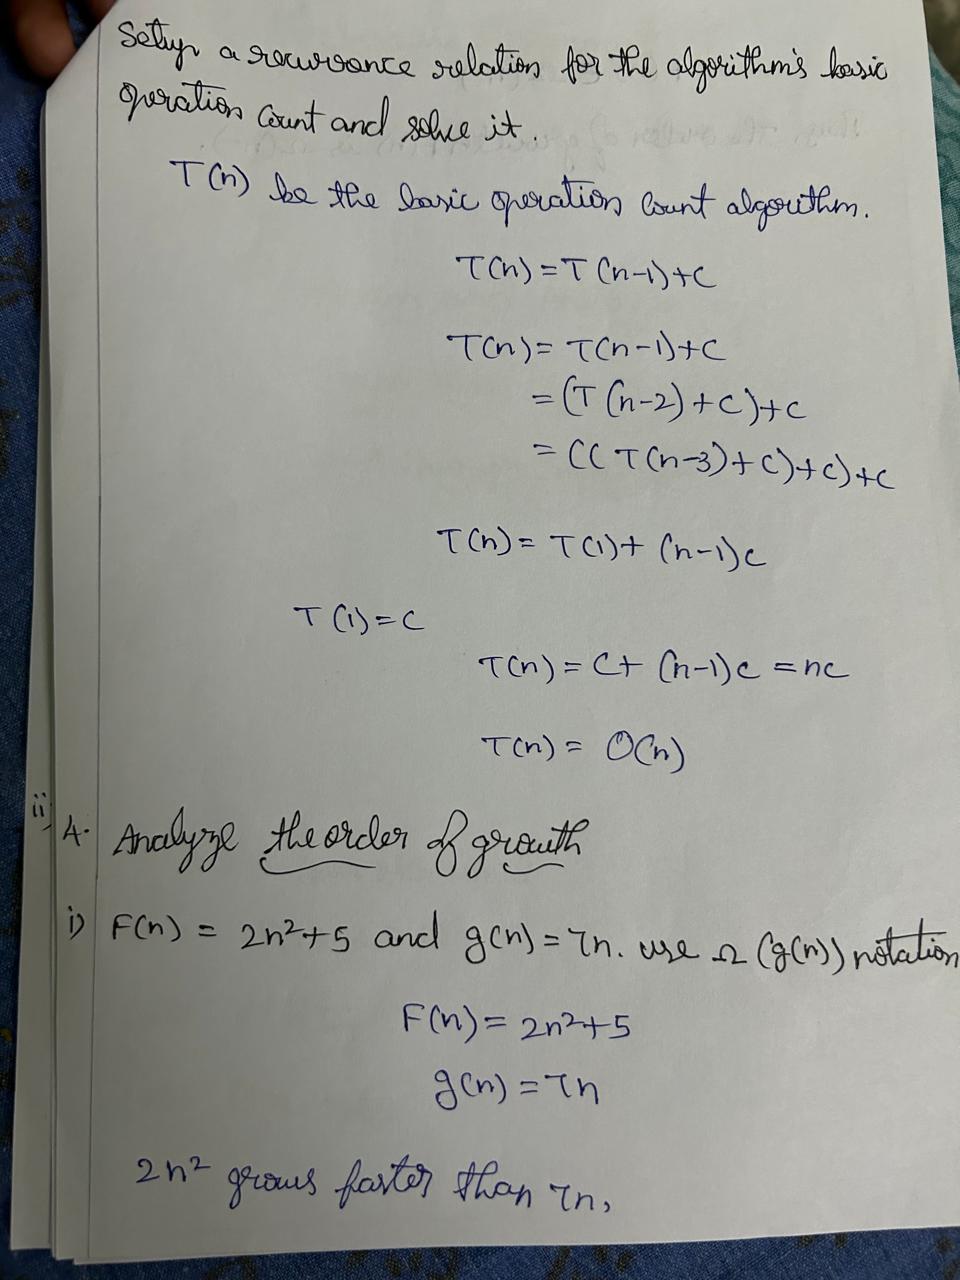 Setup a recurrance relation for the algorithm's basic
operation count and solve it.
T(n) be the basic operation count algorithm.
T(n) = T(n-1)+C
T(n) = T(n-1)+C
= (T(n-2)+C)+C
= ((T(n-3)+C)+C)+C
T(n) = T(1)+ (n-1)C
T(1)=C
T(n) = C+ (n-1)C = nC
T(n) = O(n)
ii)
4. Analyze the order of growth
i) F(n) = 2n²+5 and g(n) = 7n. use Ω (g(n)) notation
F(n) = 2n²+5
g(n) = 7n
2n² grows faster than 7n,